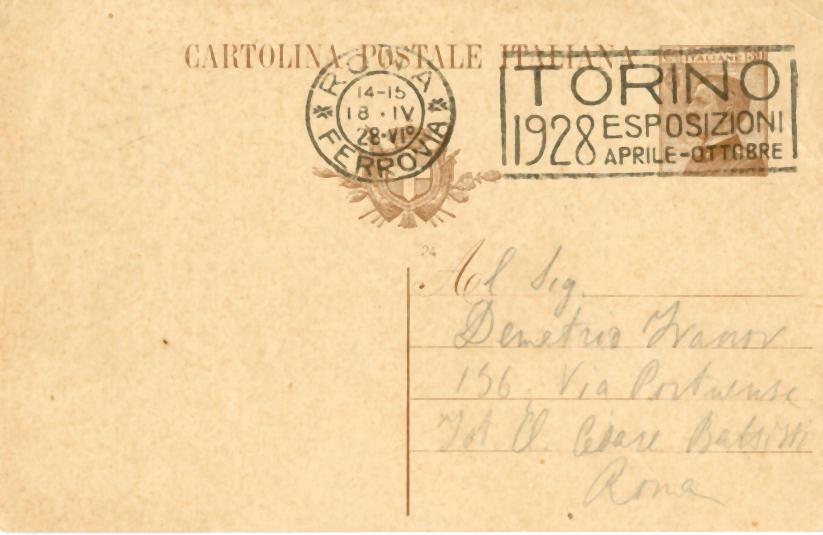 CARTOLINA POSTALE ITALIANA
ROMA
14-15
18 · IV
28·VIº
FERROVIA
TORINO
1928 ESPOSIZIONI
APRILE-OTTOBRE
24
Al Sig.
Demetrio Ivanov
156 Via Portuense
Cesare Battisti
Roma